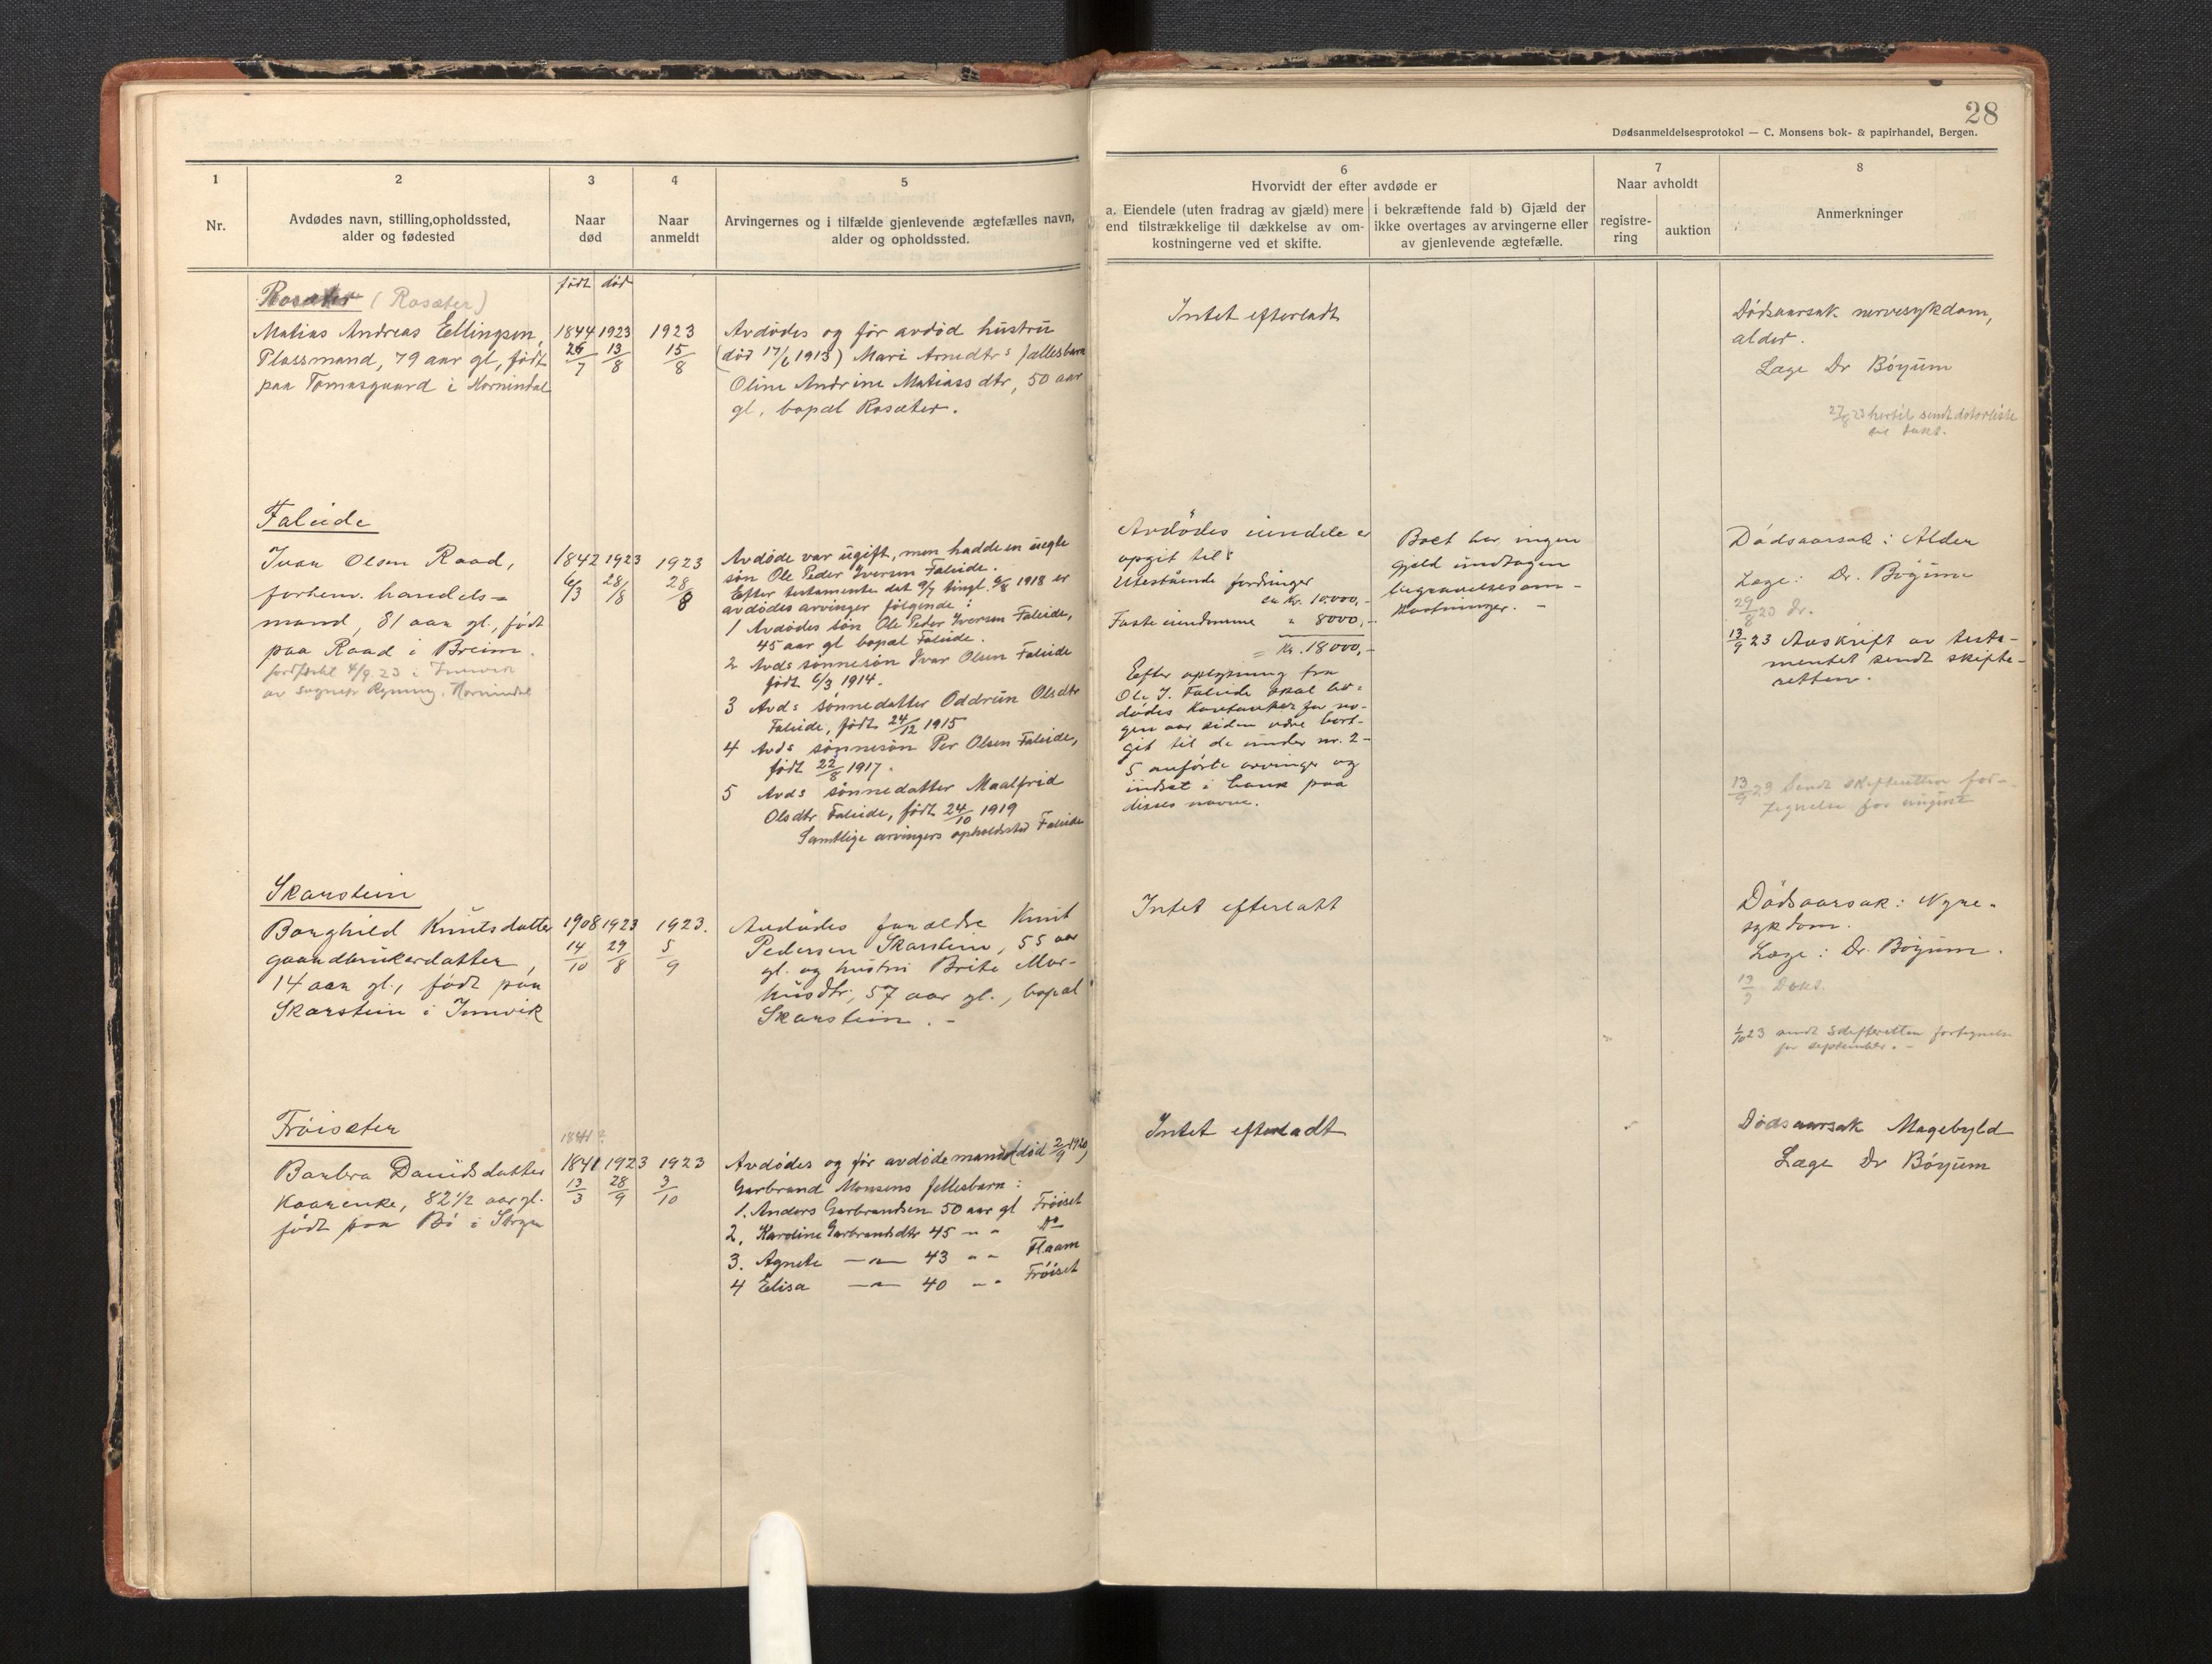 28
Dødsanmeldelsesprotokol — C. Monsens bok- & papirhandel, Bergen.
1
Nr.
2
Avdødes navn, stilling, opholdssted,
alder og fødested
3
Naar
død
4
Naar
anmeldt
5
Arvingernes og i tilfælde gjenlevende ægtefælles navn,
alder og opholdssted.
6
Hvorvidt der efter avdøde er
a. Eiendele (uten fradrag av gjæld) mere
end tilstrækkelige til dækkelse av om-
kostningerne ved et skifte.
i bekræftende fald b) Gjæld der
ikke overtages av arvingerne eller
av gjenlevende ægtefælle.
7
Naar avholdt
registre-
ring
auktion
8
Anmerkninger
født død
Rosæter (Rosæter)
Matias Andreas Ellingsen,
Plassmand, 79 aar gl, født
paa Tomasgaard i Hornindal
1844 1923
26/7 13/8
1923
15/8
Avdødes og før avdød hustru
(død 17/6 1913) Mari Arnedtrs fællesbarn
Oline Andrine Matiassdtr, 50 aar
gl, bopæl Rosæter.
Intet efterladt
Dødsaarsak nervesykdom,
alder.
Læge Dr Bøyum
27/8 23 hertil sendt
Faleide
Ivar Olsen Raad,
forhenv. handels=
mand, 81 aar gl., født
paa Raad i Breim.
jordfæstet 4/9.23 i Innvik
av sognepr Rynning, Hornindal
1842 1923
6/3 28/8
1923
28/8
Avdøde var ugift, men hadde en uegte
søn Ole Peder Iversen Faleide.
Efter testamente dat 9/7 tingl. 6/8 1918 er
avdødes arvinger følgende:
1 Avdødes søn Ole Peder Iversen Faleide,
45 aar gl bopæl Faleide.
2 Avds sønnesøn Ivar Olsen Faleide
født 6/3 1914.
3 Avds sønnedatter Oddrun Olsdtr
Faleide, født 24/12 1915
4 Avds sønnesøn Per Olsen Faleide,
født 22/8 1917.
5 Avds sønnedatter Maalfrid
Olsdtr Faleide, født 24/10 1919
Samtlige arvingers opholdssted Faleide
Avdødes eiendele er
opgit til:
Utestående fordringer
ca Kr. 10.000,-
Faste eiendomme " 8000,-
= Kr. 18000,-
Efter oplysning fra
Ole I. Faleide skal av=
dødes kontanter for no-
gen aar siden være bort-
git til de under nr. 2-
5 anførte arvinger og
indsat i bank paa
disses navne.
Boet har ingen
gjeld undtagen
begravelsesom-
kostninger. -
Dødsaarsak: Alder
Læge: Dr. Bøyum
29/8 23 Dr.
13/9 23 Avskrift av testa-
mentet sendt skifte-
retten.
13/9 23 Sendt skifteretten for-
tegnelse for august
Skarstein
Borghild Knutsdatter
gaardbrukerdatter,
14 aar gl., født paa
Skarstein i Innvik
1908 1923
14/10 29/8
1923.
5/9
Avdødes forældre Knut
Pedersen Skarstein, 55 aar
gl. og hustru Brite Mar-
kusdtr, 57 aar gl., bopæl
Skarstein. -
Intet efterlatt
Dødsaarsak: Nyre-
sykdom.
Læge: Dr. Bøyum.
13/9 Dokt.
1/10 23 sendt skifteretten fortegnelse
for september. -
Frøisæter
Barbra Davidsdatter
Kaarenke, 82 1/2 aar gl.
født paa Bø i Stryn
1841?
1841 1923
13/3 28/9
1923
3/10
Avdødes og før avdøde mand (død 2/9 1920)
Garbrand Monsens fellesbarn:
1. Anders Garbrandsen 50 aar gl Frøiset
2, Karoline Garbrandsdtr 45 " " Do
3. Agnete —"— 43 " " Flaam
4 Elisa —"— 40 " " Frøiset
Intet efterladt
Dødsaarsak Magebyld
Læge Dr Bøyum